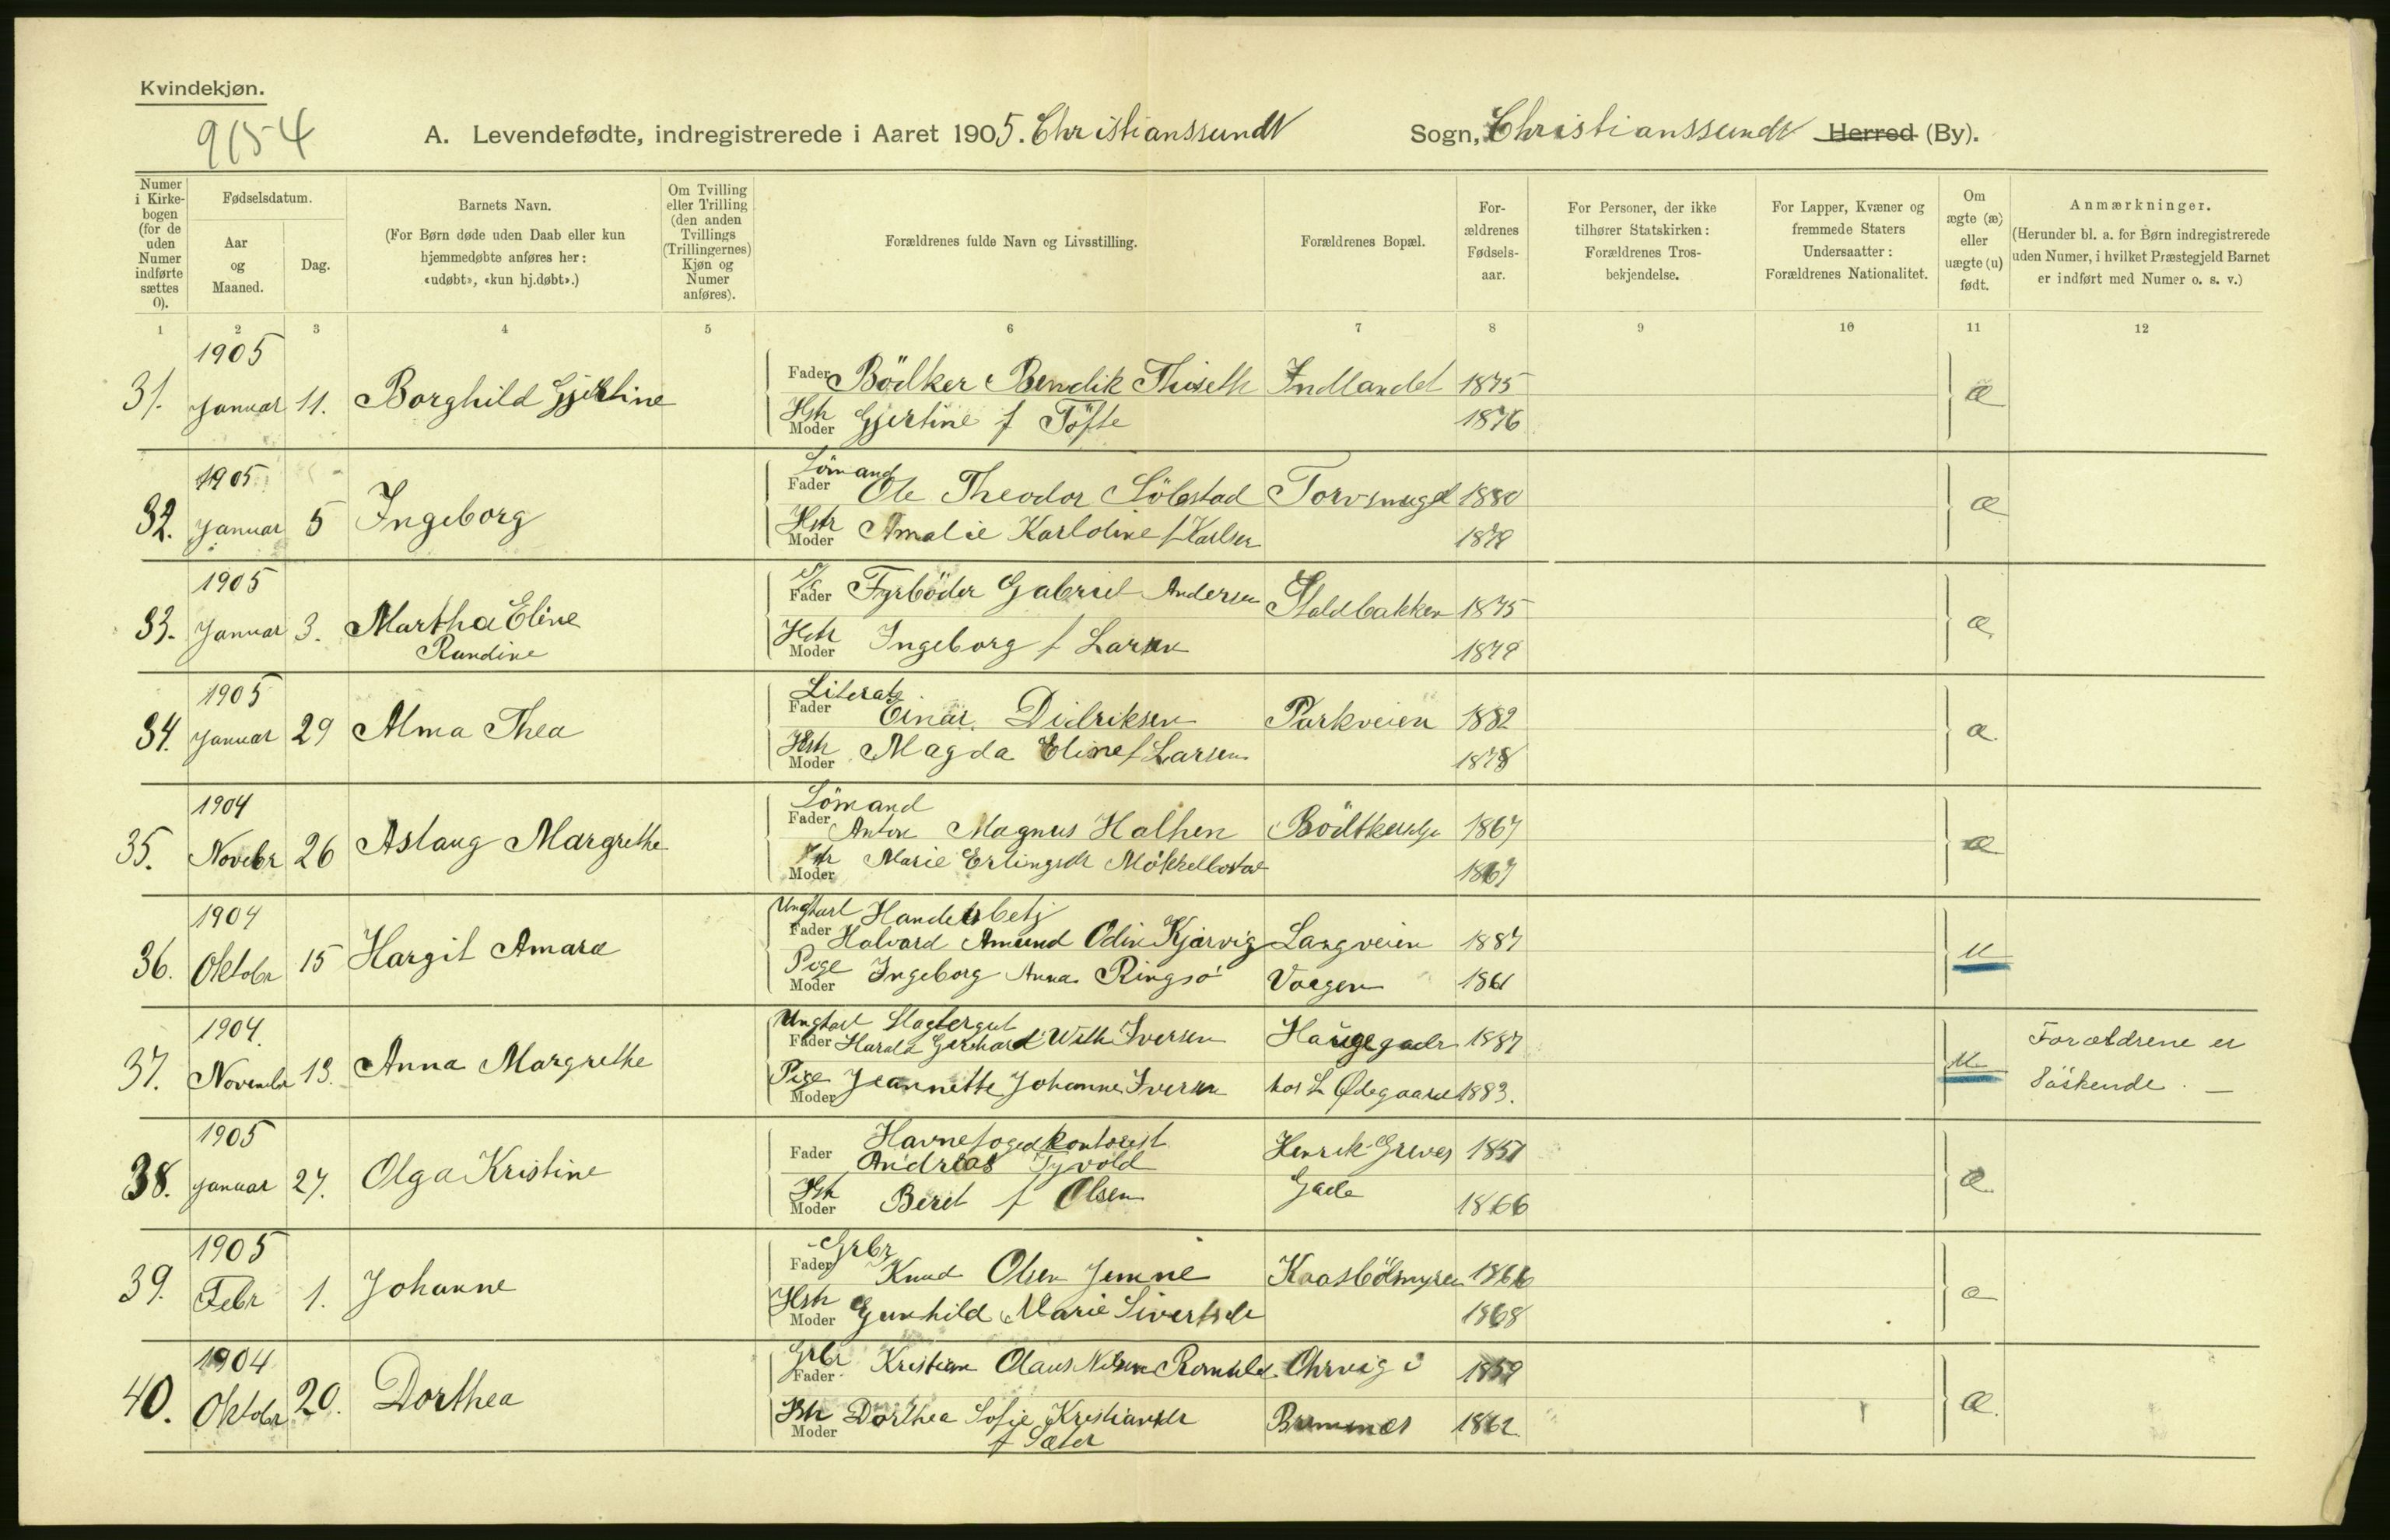 Kvindekjøn.
9154
A. Levendefødte, indregistrerede i Aaret 1905. Christianssundt Sogn, Christianssundt Herred (By).
Numer i Kirkebogen (for de uden Numer indførte sættes 0).
Fødselsdatum.
Aar og Maaned.
Dag.
Barnets Navn.
(For Børn døde uden Daab eller kun hjemmedøbte anføres her: «udøbt», «kun hj.døbt».)
Om Tvilling eller Trilling (den anden Tvillings (Trillingernes) Kjøn og Numer anføres).
Forældrenes fulde Navn og Livsstilling.
Forældrenes Bopæl.
Forældrenes Fødselsaar.
For Personer, der ikke tilhører Statskirken: Forældrenes Trosbekjendelse.
For Lapper, Kvæner og fremmede Staters Undersaatter: Forældrenes Nationalitet.
Om ægte (æ) eller uægte (u) født.
Anmærkninger.
(Herunder bl. a. for Børn indregistrerede uden Numer, i hvilket Præstegjeld Barnet er indført med Numer o. s. v.)
1 2 3 4 5 6 7 8 9 10 11 12
1905
31. Januar 11. Borghild Gjertine Fader Bödker Bendik Thiseth Indlandet 1875 æ
Hstr Moder Gjertine f Töfte 1876
1905
32. Januar 5 Ingeborg Sömand Fader Ole Theodor Söbstad Torvsmuget 1880 æ
Hstr Moder Amalie Karloline f Karlsen 1879
1905
33. Januar 3. Martha Eline Randine Fader Fyrböder Gabriel Andersen Staldbakken 1875 æ
Hstr Moder Ingeborg f Larsen 1879
1905
34. Januar 29 Alma Thea Fader Einar Didriksen Parkveien 1882 æ
Hstr Moder Magda Eline f Larsen 1878
1904
35. Novebr 26 Aslaug Margrethe Sömand Fader Anton Magnus Halhen 1867 æ
Moder Marie Erlingsdr Mökkelbostad 1867
1904
36. Oktobr 15 Hargit Amara Ungkarl Handelsbetj Fader Halvard Amund Odin Kjørvig Langveien 1887 u
Pige Moder Ingeborg Anna Ringsö Vaagen 1861
1904.
37. Novembr 13. Anna Margrethe Ungkarl Slagtergut Fader Harald Gerhard Wilh Iversen Haugegadn 1887 u Forældrene er
Pige Moder Jeannette Johanne Iversen hos L Ødegaard 1883. Söskende. —
1905
38. Januar 27. Olga Kristine Fader Havnefogedkontorist Andreas Tyvold Henrik Greves 1857 æ
Hstr Moder Beret f Olsen Gade 1866
1905
39. Febr 1. Johanne Grbr Fader Knud Olsen Jemne Kaasbölmyren 1866 æ
Hstr Moder Gunhild Marie Sivertsdr 1868
1904
40. Oktobr 20. Dorthea Grbr Fader Kristian Olaus Nilsen Romuld Ohrvig i 1859 æ
Hstr Moder Dorthea Sofie Kristiansdr Bremsnes 1862
f Sæter